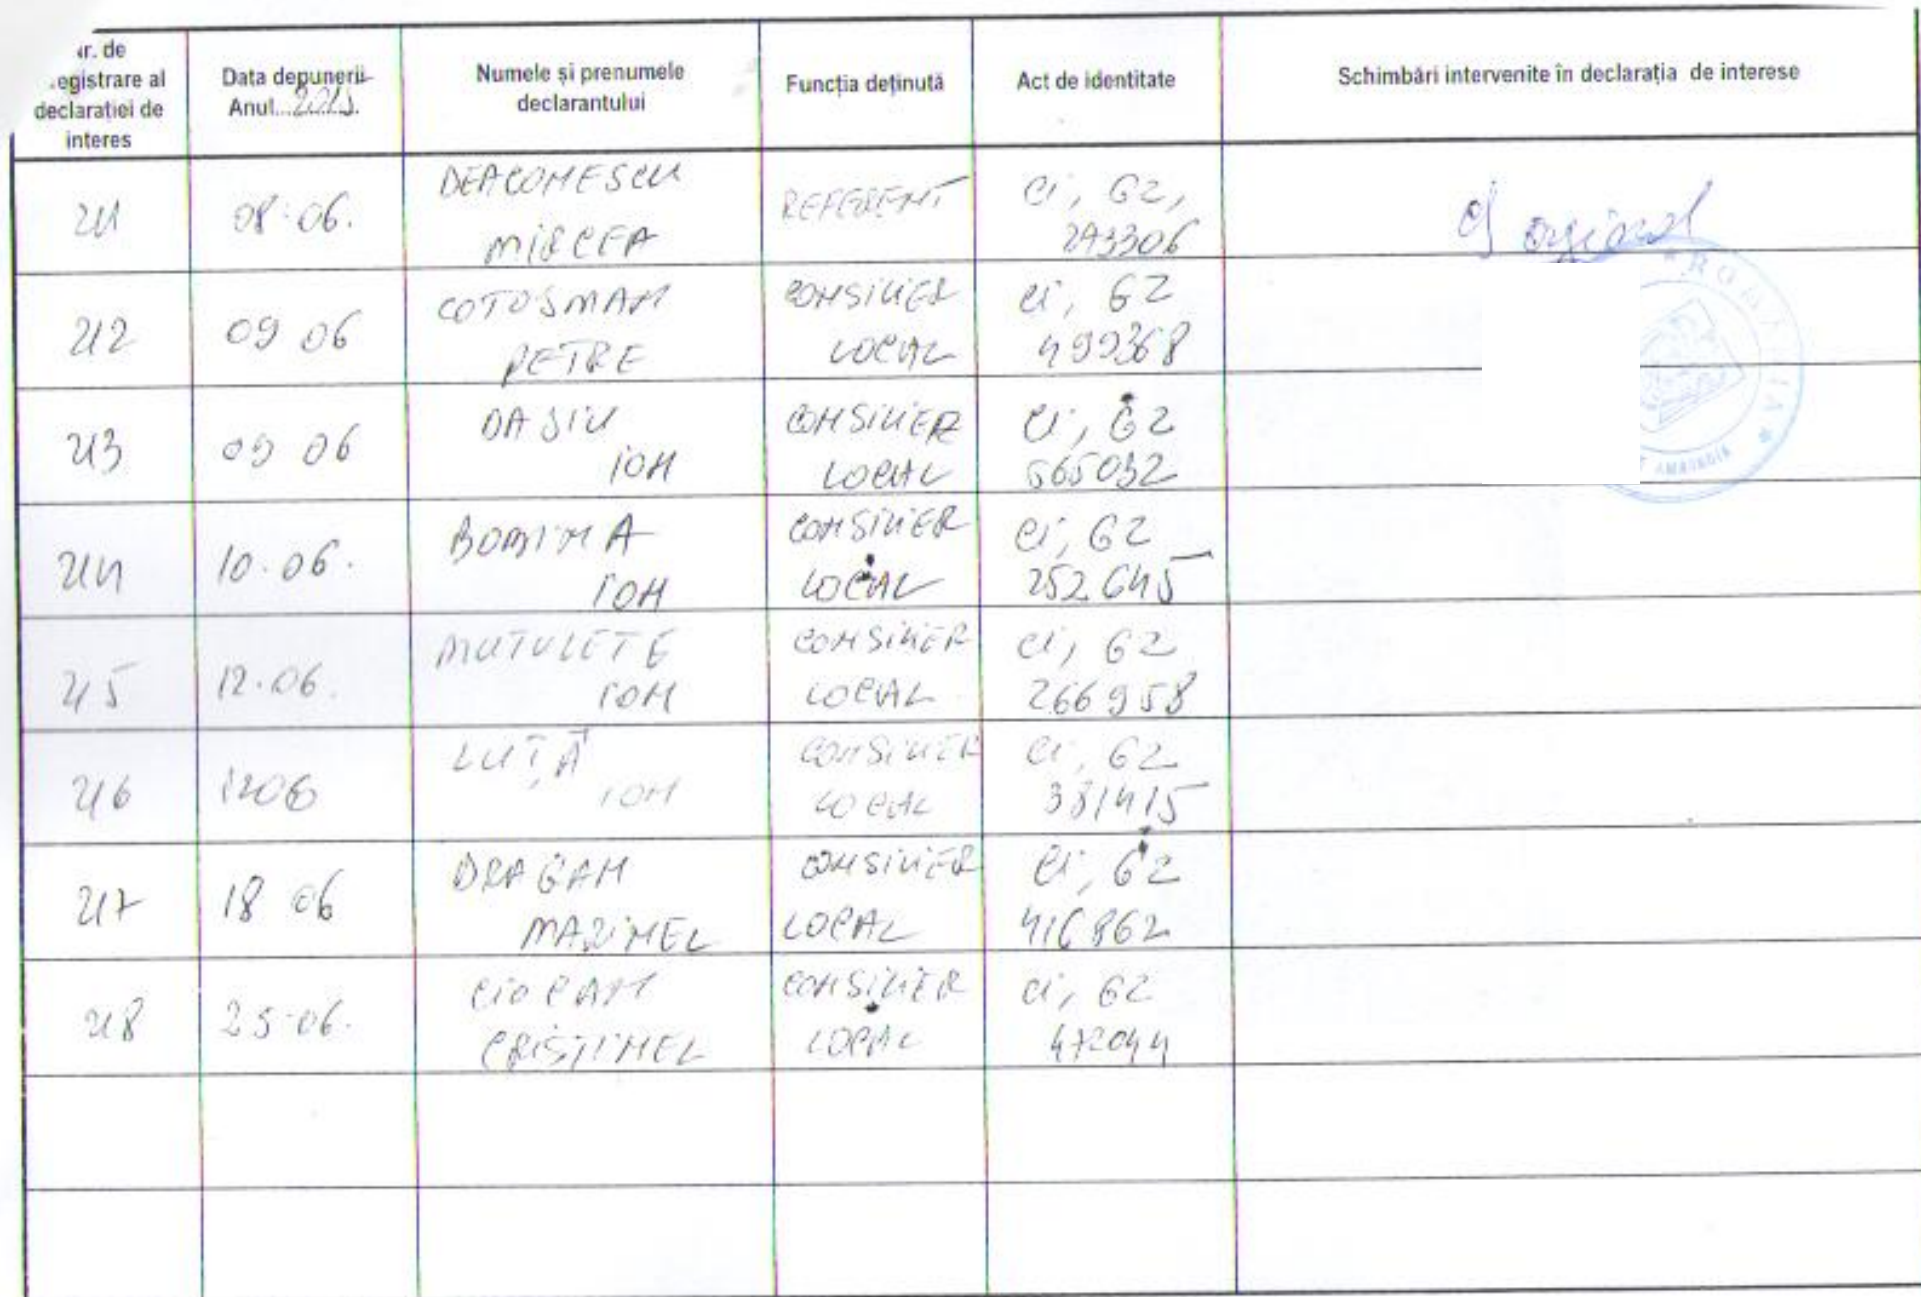 Nr. de
registrare al
declarației de
interes
Data depunerii
Anul...2015.
Numele și prenumele
declarantului
Funcția deținută
Act de identitate
Schimbări intervenite în declarația de interese
241
08.06.
DEACONESCU
MIRCEA
REFERENT
CI, GZ,
293306
242
09 06
COTOȘMAN
PETRE
CONSILIER
LOCAL
CI, GZ
499368
243
09 06
DASIU
ION
CONSILIER
LOCAL
CI, GZ
565032
244
10.06.
BOBINA
ION
CONSILIER
LOCAL
CI, GZ
252645
245
12.06.
MUTULETE
ION
CONSILIER
LOCAL
CI, GZ
266958
246
1206
LUȚĂ
ION
CONSILIER
LOCAL
CI, GZ
381415
247
18 06
DRAGAN
MARINEL
CONSILIER
LOCAL
CI, GZ
416862
248
25.06.
CIOCAN
CRISTINEL
CONSILIER
LOCAL
CI, GZ
472044